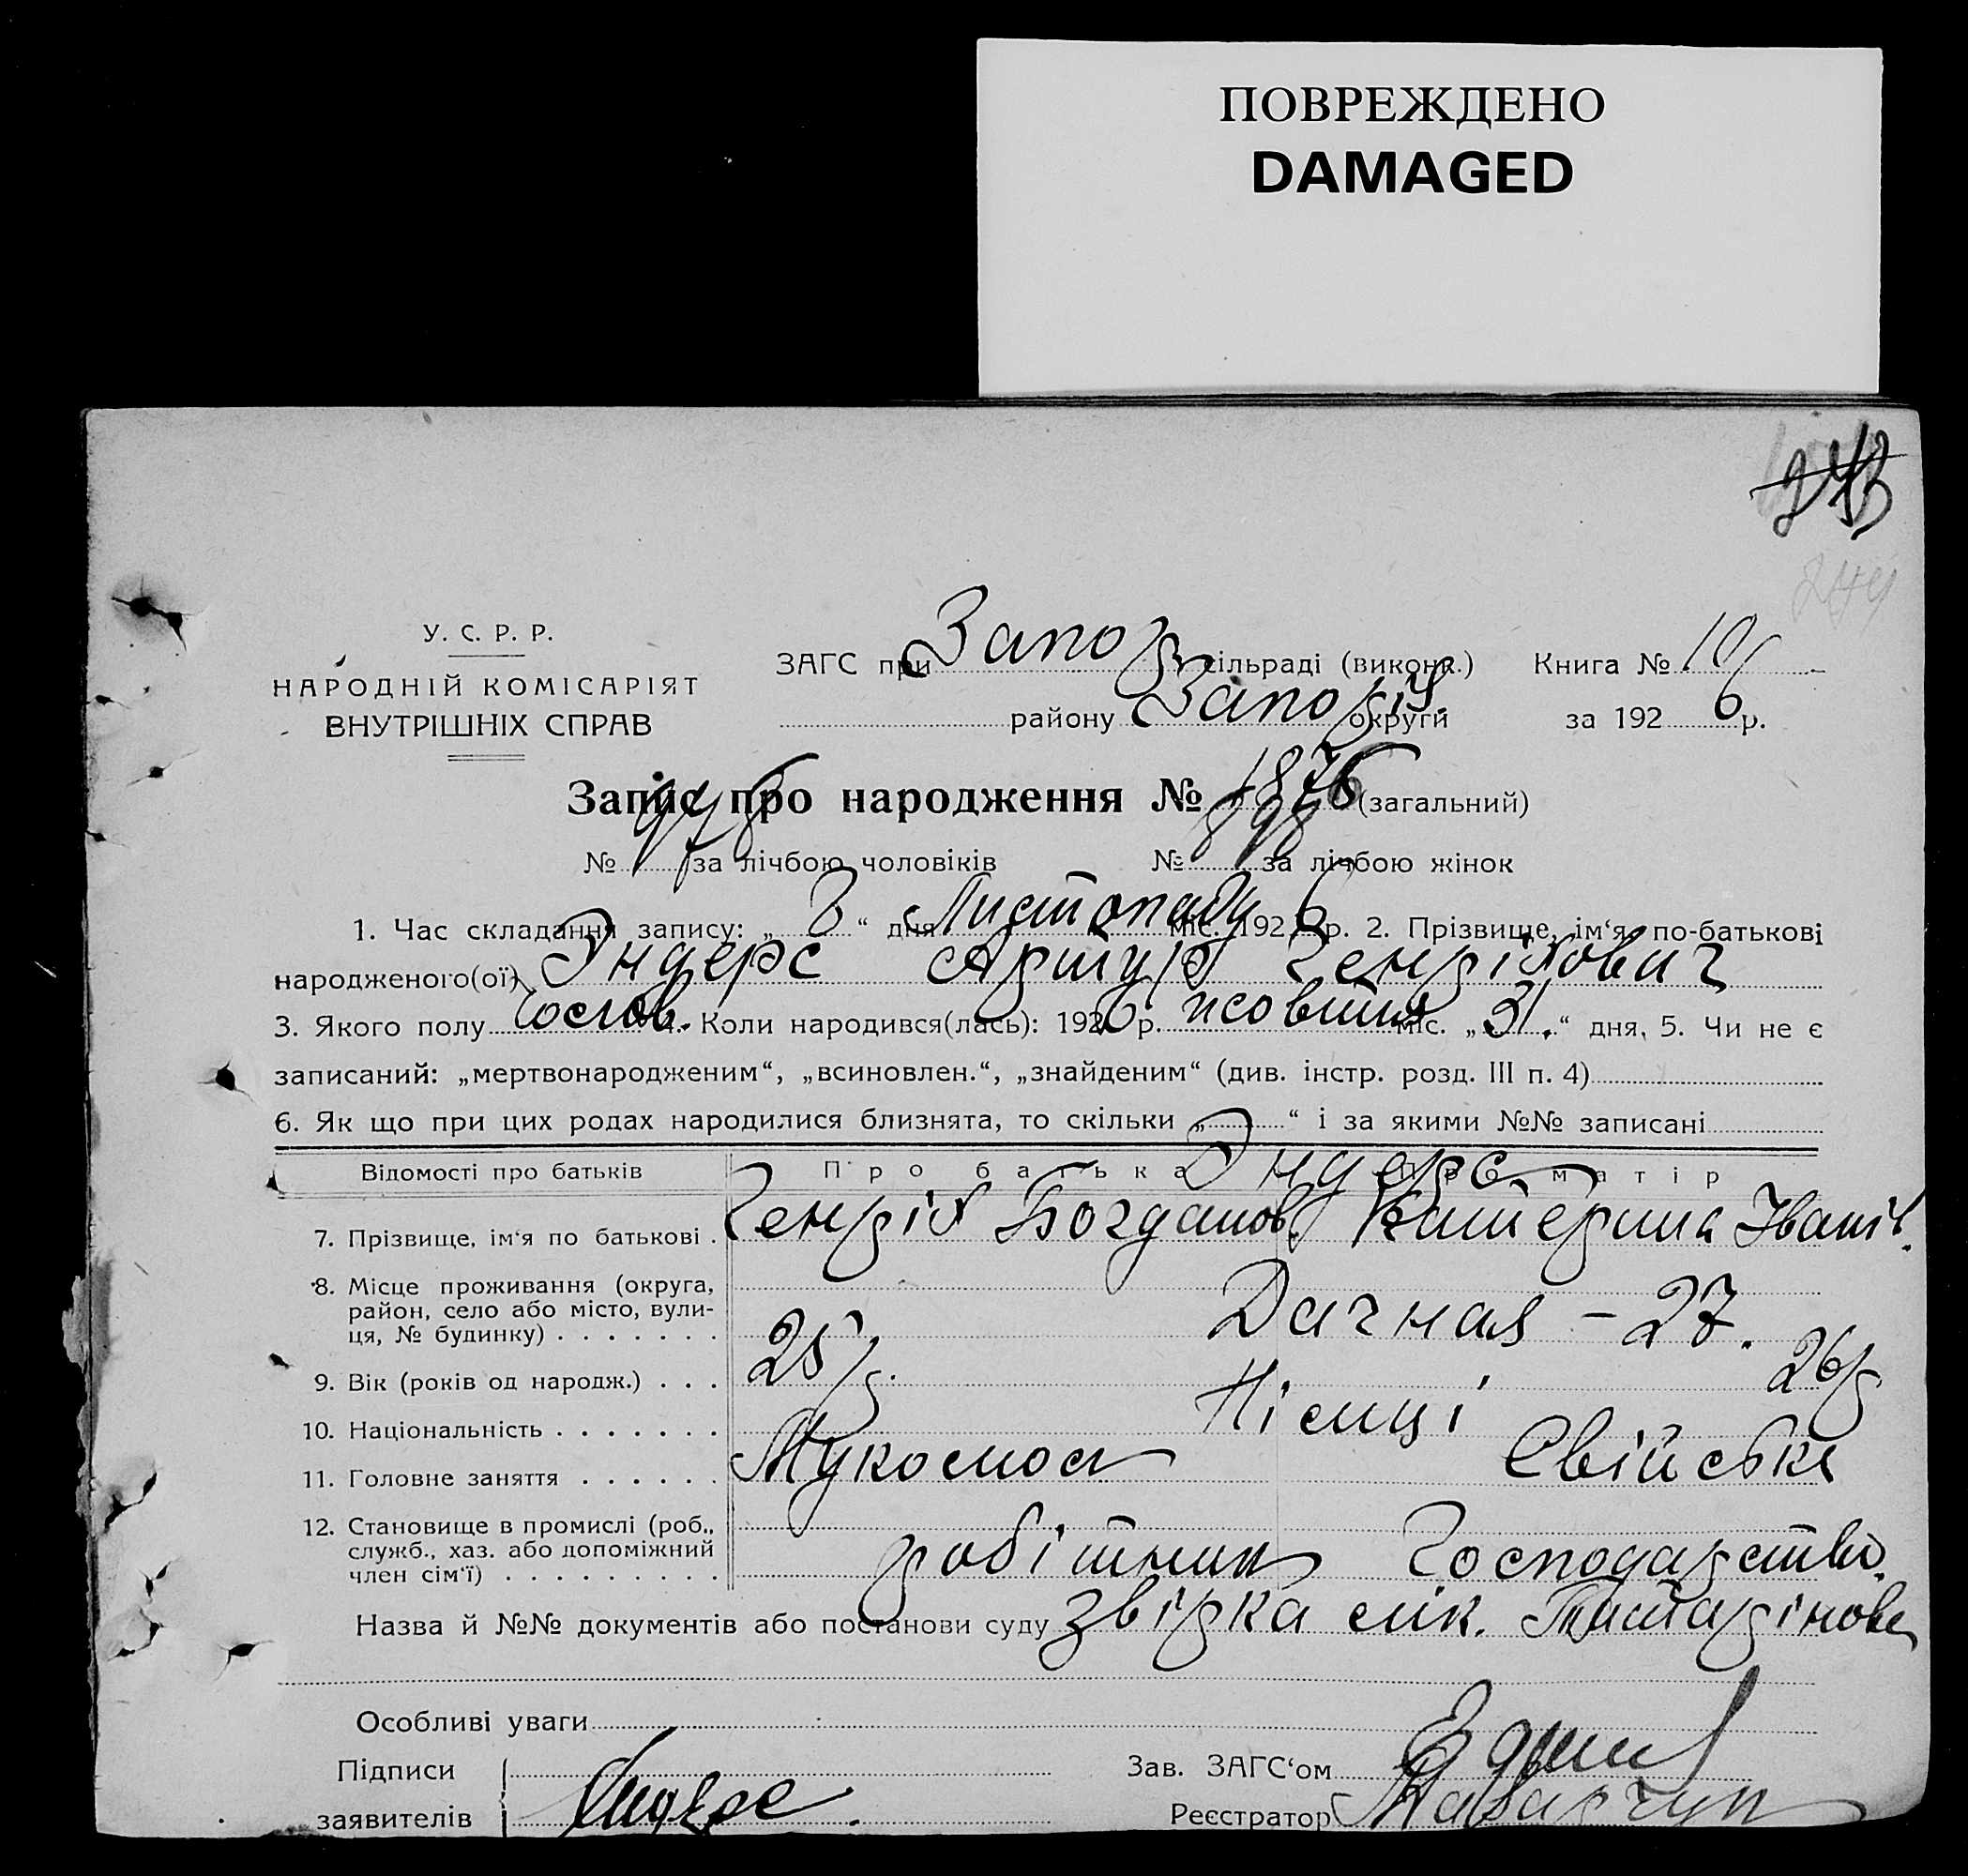 ПОВРЕЖДЕНО
DAMAGED
243
244
У. С. Р. Р.
НАРОДНІЙ КОМІСАРІЯТ
ВНУТРІШНІХ СПРАВ
ЗАГС при Запоз. сільраді (виконк.) Книга № 10/
району Запоріж. округи за 192 6 р.
Запис про народження № 1876 (загальний)
№ 978 за лічбою чоловіків № 898 за лічбою жінок
1. Час складання запису: „ 8 “ дня Листопаду міс. 192 6 р. 2. Прізвище, ім‘я, по-батькові
народженого(ої) Эндерс Артур Генріхович
3. Якого полу чолов. 4. Коли народився(лась): 192 6 р. жовтня міс. „ 31. “ дня, 5. Чи не є
записаний: „мертвонародженим“, „всиновлен.“, „знайденим“ (див. інстр. розд. III п. 4)
6. Як що при цих родах народилися близнята, то скільки „ “ і за якими №№ записані
Відомості про батьків Про батька Про матір
Эндерс
7. Прізвище, ім‘я по батькові . Генріх Богданов. Катерина Іванів.
8. Місце проживання (округа,
район, село або місто, вули-
ця, № будинку) . . . . . . . Дачная – 27.
9. Вік (років од народж.) . . . 25/р. 26/р
10. Національність . . . . . . . Німці
11. Головне заняття . . . . . . Мукомол Свійське
12. Становище в промислі (роб.,
служб., хаз. або допоміжний
член сім‘ї) . . . . . . . . . робітник Господарство.
Назва й №№ документів або постанови суду звірка лік.
Особливі уваги
Підписи
заявителів Эндерс
Зав. ЗАГС‘ом
Реєстратор